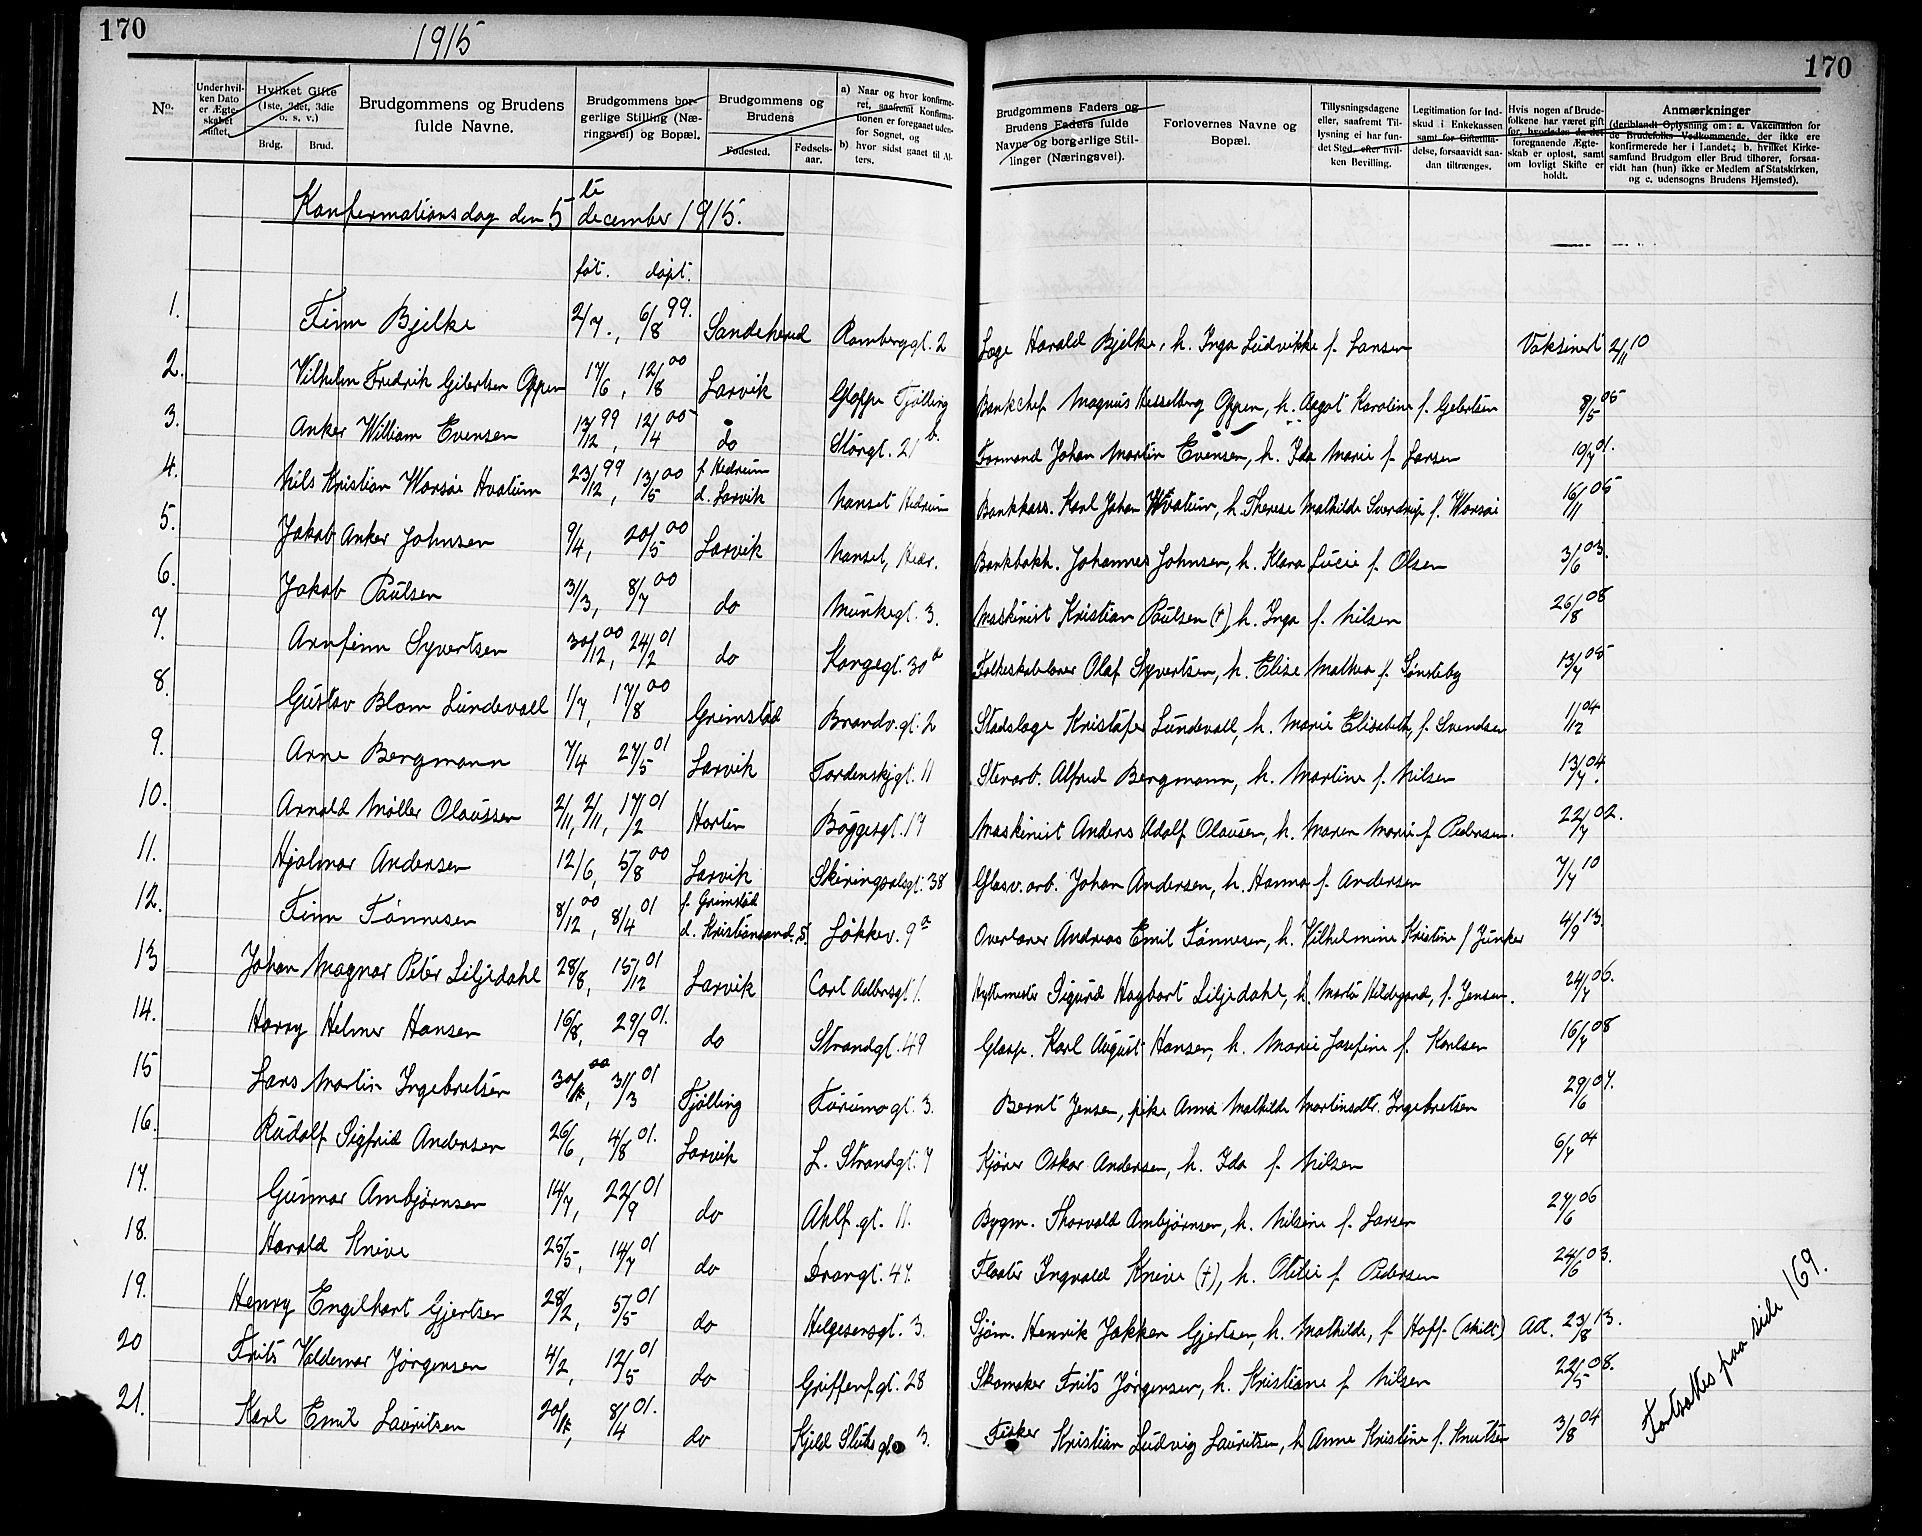 170
1915
170
No.
Under hvilken Dato er Ægteskabet stiftet.
Hvilket Gifte (1ste, 2det, 3die o. s. v.)
Brdg.
Brud.
Brudgommens og Brudens fulde Navne.
Brudgommens borgerlige Stilling (Næringsvei) og Bopæl.
Brudgommens og Brudens
Fødested.
Fødselsaar.
a) Naar og hvor konfirmeret, saafremt Konfirmationen er foregaaet udenfor Sognet, og
b) hvor sidst gaaet til Alters.
Brudgommens Faders og Brudens Faders fulde Navne og borgerlige Stillinger (Næringsvei).
Forlovernes Navne og Bopæl.
Tillysningsdagene eller, saafremt Tillysning ei har fundet Sted, efter hvilken Bevilling.
Legitimation for Indskud i Enkekassen samt for Giftetilladelse, forsaavidt saadan tiltrænges.
Hvis nogen af Brudefolkene har været gift før, hvorledes da det foregaaende Ægteskab er opløst, samt om lovligt Skifte er holdt.
Anmærkninger
(deriblandt Oplysning om: a. Vakcination for de Brudefolks Vedkommende, der ikke ere konfirmerede her i Landet; b. hvilket Kirkesamfund Brudgom eller Brud tilhører, forsaavidt han (hun) ikke er Medlem af Statskirken, og c. udensogns Brudens Hjemsted).
Konfirmationsdag den 5te december 1915.
føt. døpt.
1. Finn Bjelke 2/7. , 6/8 99. Sandeherud Rambergt. 2 Læge Harald Bjelke, h. Inga Ludvikke f. Larsen Vaksinert 2/11 10
2. Vilhelm Fredrik Gilertsen Oppen 17/6 , 12/8 00 Larvik Gloppe Tjølling Bankchef Magnus Hesselberg Oppen, h. Aagot Karoline f. Gilertsen 8/5 05
3. Anker William Evensen 13/12 99, 12/4 00 do Storgt. 21 b. Formand Johan Martin Evensen, h. Ida Marie f. Larsen 10/7 01.
4. Nils Kristian Worsøe Hvatum 23/12 99, 13/5 00 f. Hedrum d. Larvik Nanset Hedrum Bankkass. Karl Johan Hvatum, h. Therese Mathilde Sverdrup f. Worsøe 16/11 05
5. Jakob Anker Johnsen 9/4, 20/5 00 Larvik Nanset, Hedr. Bankbokh. Johannes Johnsen, h. Klara Lucie f. Olsen 3/6 03.
6. Jakob Paulsen 31/3, 8/7 00 do Munkegt. 3. Maskinist Kristian Paulsen (†), h. Inga f. Nilsen 26/8 08
7. Arnfinn Syvertsen 30/12 00, 24/2 01 do Kongegt. 30 a Folkeskolelærer Olaf Syvertsen, h. Elise Mathea f. Sønsteby 13/7 05
8. Gustav Blom Lundevall 1/7, 17/8 00 Grimstad Brandv.gt. 2 Stadslæge Kristofer Lundevall, h. Marie Elisabeth, f. Svendsen 1/12 04
9. Arne Bergmann 7/4 27/5 01 Larvik Tordenskjgt. 11 Stenarb. Alfred Bergmann, h. Martine f. Nilsen 13/7 04.
10. Arnold Møller Olaussen 2/11, 2/11, 17/2 01 Horten Bøggesgt. 17 Maskinist Anders Adolf Olausen, h. Maren Marie f. Pedersen. 22/7 02.
11. Hjalmar Andersen 12/6, 5/8 00 Larvik Skiringsalsgt. 38 Glasv. arb. Johan Andersen, h. Hanna f. Andersen 7/7 10
12. Finn Tønnesen 8/12 00, 8/4 01 f. Grimstad d. Kristiansand. S. Løkkev. 9 a Overlærer Andreas Emil Tønnesen, h. Vilhelmine Kristine f. Junker 4/9 13.
13 Johan Magnar Peter Liljedahl 28/8, 15/12 01 Larvik Carl Adlersgt. 1. Hyttemester Sigurd Hagbart Liljedahl, h. Marta Hildegard, f. Jensen. 24/7 06.
14. Harry Helmer Hansen 16/8, 29/9 01. do Strandgt. 49 Glasp. Karl August Hansen, h. Marie Josefine f. Karlsen 16/7 08
15 Lars Martin Ingebretsen 30/12 00, 31/3 01 Tjølling Farumogt. 3. Bernt Jensen, pike Anna Mathilde Martinsdtr. Ingebretsen 29/6 07.
16. Rudolf Sigfrid Andersen 26/6, 4/8 01. Larvik L. Strandgt. 7 Kjører Oskar Andersen, h. Ida f. Nilsen 6/7 04
17. Gunnar Ambjørnsen 14/7, 22/9 01 do Ahlf. gt. 11. Bygm. Thorvald Ambjørnsen, h. Nilsine f. Larsen 27/6 06
18. Harald Kneive 25/5, 14/7 01 do Drangt. 47. Fløter Ingvald Kneive (†), h. Otilie f. Pedersen 24/6 03.
19. Henry Engelhart Gjertsen 28/2, 5/5 01 do Helgesensgt. 3. Sjøm. Henrik Jakken Gjertsen, h. Mathilde, f. Hoff. (skilt) Att. 23/8 13.
20 Frits Valdemar Jørgensen 4/2, 12/5 01 do Griffenf.gt. 28 Skomaker Frits Jørgensen, h. Kristiane f. Nilsen 22/5 08.
21. Karl Emil Lauritsen 20/12, 8/4 01. do Kjeld Stubs gt. 3. Fisker Kristian Ludvig Lauritsen, h. Anne Kristine f. Knutsen 3/8 04
Fortsættes paa side 169.